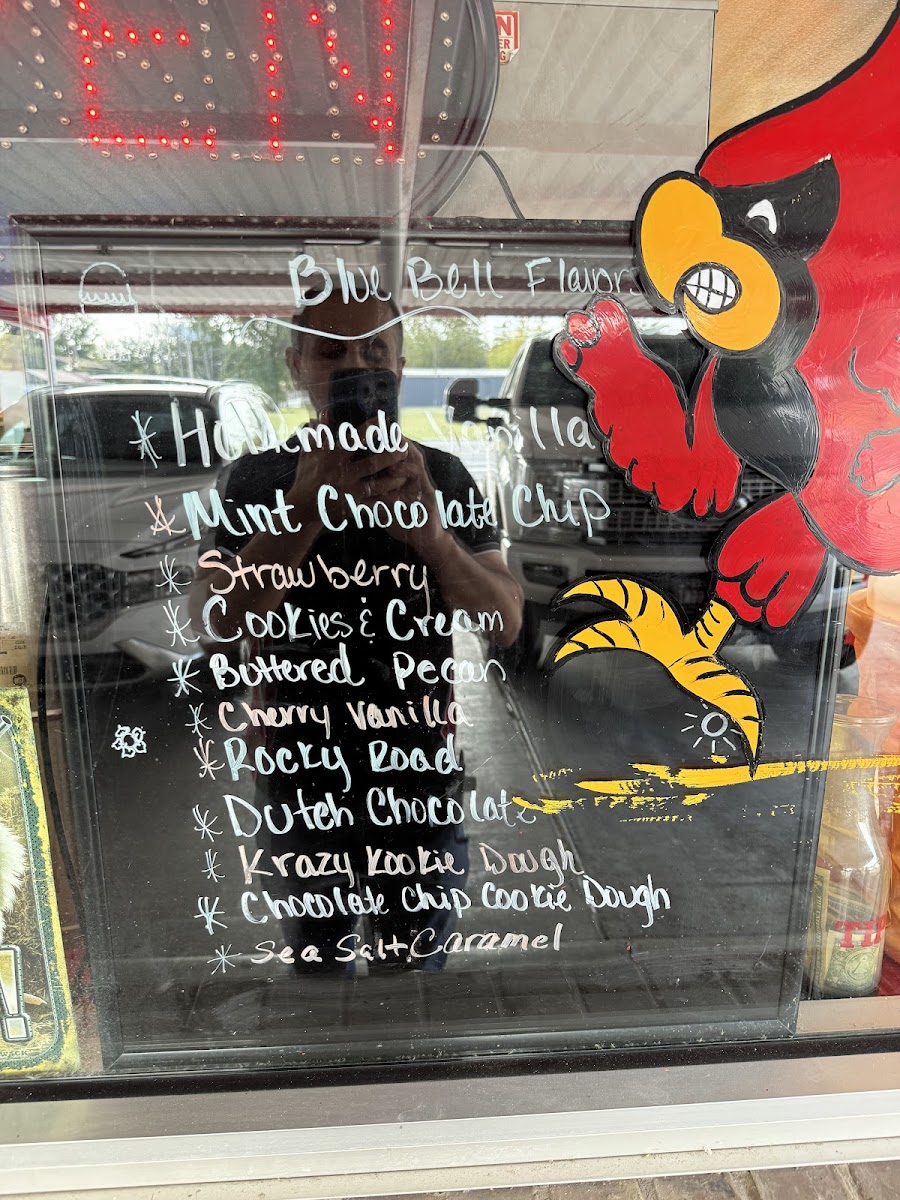 EN
Blue Bell Flavors
* Homemade Vanilla
* Mint Chocolate Chip
* Strawberry
* Cookies & Cream
* Buttered Pecan
* Cherry Vanilla
* Rocky Road
* Dutch Chocolate
* Krazy Kookie Dough
* Chocolate Chip Cookie Dough
* Sea Salt Caramel